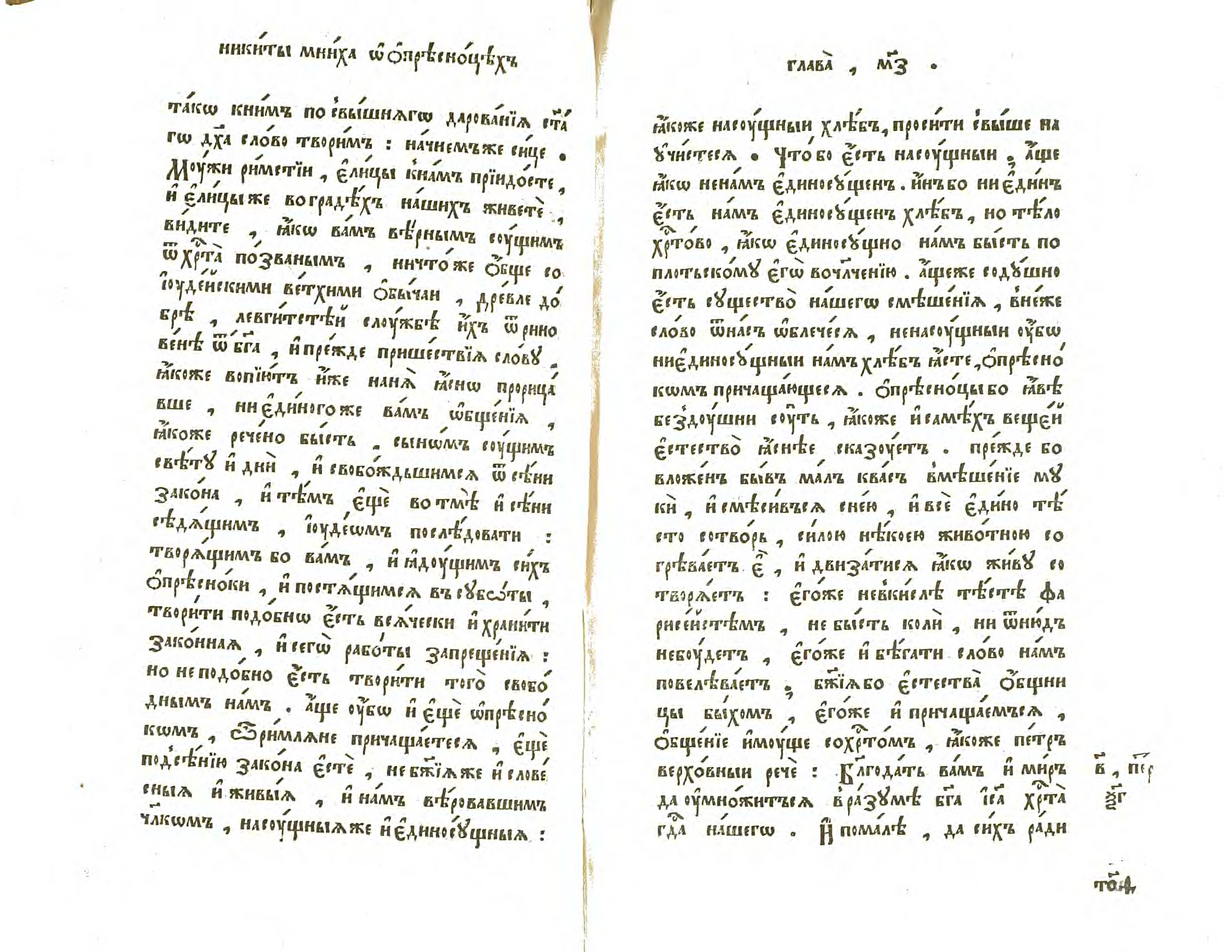 ники́ты мни́ха ѡ҆ ѻ҆прѣсно́цѣхъ
та́кѡ кни́мъ по свы́шнягѡ дарова́нїѧ ст҃а́
гѡ дх҃а сло́во твори́мъ : на́чнемъже си́це .
Мꙋ́жи ри́мстїи , є҆ли́цы кна́мъ прїидо́сте ,
и҆ є҆ли́цыже воградѣ́хъ на́шихъ живетѐ ,
ви́дите , ꙗ҆́кѡ ва́мъ вѣ́рнымъ сꙋ́щимъ
ѿ хрⷭ҇та̀ по́званымъ , ничто́же ѻ҆́бще со
і҆ꙋде́йскими ве́тхими ѻ҆бы́чаи , дре́вле до́
брѣ , левги́тстѣй слꙋ́жбѣ и҆́хъ ѿри́но
ве́нѣ ѿ бг҃а , и҆ пре́жде прише́ствїѧ сло́вꙋ ,
ꙗ҆́коже вопїю́тъ и҆́же наня̀ ꙗ҆́снѡ прорица́
вше , ни є҆ди́ногоже ва́мъ ѡ҆бще́нїѧ ,
ꙗ҆́коже рече́но бы́сть , сынѡ́мъ сꙋ́щимъ
свѣ́тꙋ и҆ дни̑ , и҆ свобо́ждьшимсѧ ѿ сѣ́ни
зако́на , и҆ тѣ́мъ є҆щѐ во тмѣ̀ и҆ сѣ́ни
сѣдя́щимъ , і҆ꙋде́ѡмъ послѣ́довати :
творя́щимъ бо ва́мъ , и҆ ꙗ҆дꙋ́щимъ си́хъ
ѻ҆прѣсно́ки , и҆ постя́щимсѧ въ сꙋбѡ́ты ,
твори́ти подо́бнѡ є҆́сть вся́чески и҆ храни́ти
зако́ннаѧ , и҆ сегѡ̀ рабо́ты запреще́нїѧ :
но не подо́бно є҆́сть твори́ти того̀ свобо́
днымъ на́мъ . а҆́ще ᲂу҆́бѡ и҆ є҆щѐ ѡ҆прѣсно́
кѡмъ , ѽ ри́млѧне причаща́етесѧ , є҆щѐ
под̾сѣ́нїю зако́на є҆стѐ , не бж҃їѧже и҆ слове́
сныѧ и҆ живы́ѧ , и҆ на́мъ вѣ́ровавшимъ
чл҃кѡмъ , насꙋ́щныѧже и҆ є҆диносꙋ́щныѧ :
глава̀ , м҃з .
ꙗ҆́коже насꙋ́щныи хлѣ́бъ , проси́ти свы́ше на
ᲂу҆чи́стесѧ . Что́ бо є҆́сть насꙋ́щныи ; а҆́ще
ꙗ҆́кѡ ненáмъ є҆диносꙋ́щенъ . и҆́нъ бо ни є҆ди́нъ
є҆́сть на́мъ є҆диносꙋ́щенъ хлѣ́бъ , но тѣ́ло
хрⷭ҇то́во , ꙗ҆́кѡ є҆диносꙋ́щно на́мъ бы́сть по
пло́тьскомꙋ є҆гѡ̀ вочл҃че́нїю . а҆́щеже содꙋ́шно
є҆́сть сꙋщество̀ на́шегѡ смѣше́нїѧ , вне́же
сло́во ѿна́съ ѡ҆блече́сѧ , ненасꙋ́щныи ᲂу҆́бѡ
ни є҆диносꙋ́щныи на́мъ хлѣ́бъ ꙗ҆́сте , ѻ҆прѣсно́
кѡмъ причаща́ющесѧ . ѻ҆прѣсно́цы бо ꙗ҆́вѣ
бездꙋ́шни сꙋ́ть , ꙗ҆́коже и҆ самѣ́хъ веще́й
є҆стество̀ ꙗ҆снѣ́е ска́зꙋетъ . пре́жде бо
вложе́нъ бы́въ ма́лъ ква́съ вмѣше́нїе мꙋ
кѝ , и҆ смѣси́въсѧ сне́ю , и҆ всѐ є҆ди́но тѣ́
сто сотво́рь , си́лою нѣ́коею живо́тною со
грѣва́етъ є҆̀ , и҆ дви́затисѧ ꙗ҆́кѡ жи́вꙋ со
творя́етъ : є҆го́же невки́слѣ тѣ́стѣ фа
рисе́йстѣмъ , не бы́сть коли̑ , ни ѿню́дъ
небꙋ́детъ , є҆го́же и҆ бѣ́гати сло́во на́мъ
повелѣва́етъ ; бж҃їѧ бо є҆стества̀ ѻ҆́бщни
цы бы́хомъ , є҆го́же и҆ причаща́емъсѧ ,
ѻ҆бще́нїе и҆мꙋ́ще со хрⷭ҇то́мъ , ꙗ҆́коже пе́тръ
верхо́вныи речѐ : Блгода́ть ва́мъ и҆ ми́ръ
да ᲂу҆мно́житьсѧ вра́зꙋмѣ бг҃а і҆с҃а хрⷭ҇та̀
гдⷭ҇а на́шегѡ . И҆ пома́лѣ , да си́хъ ра́ди
в҃ , пе́р
ѯ҃г